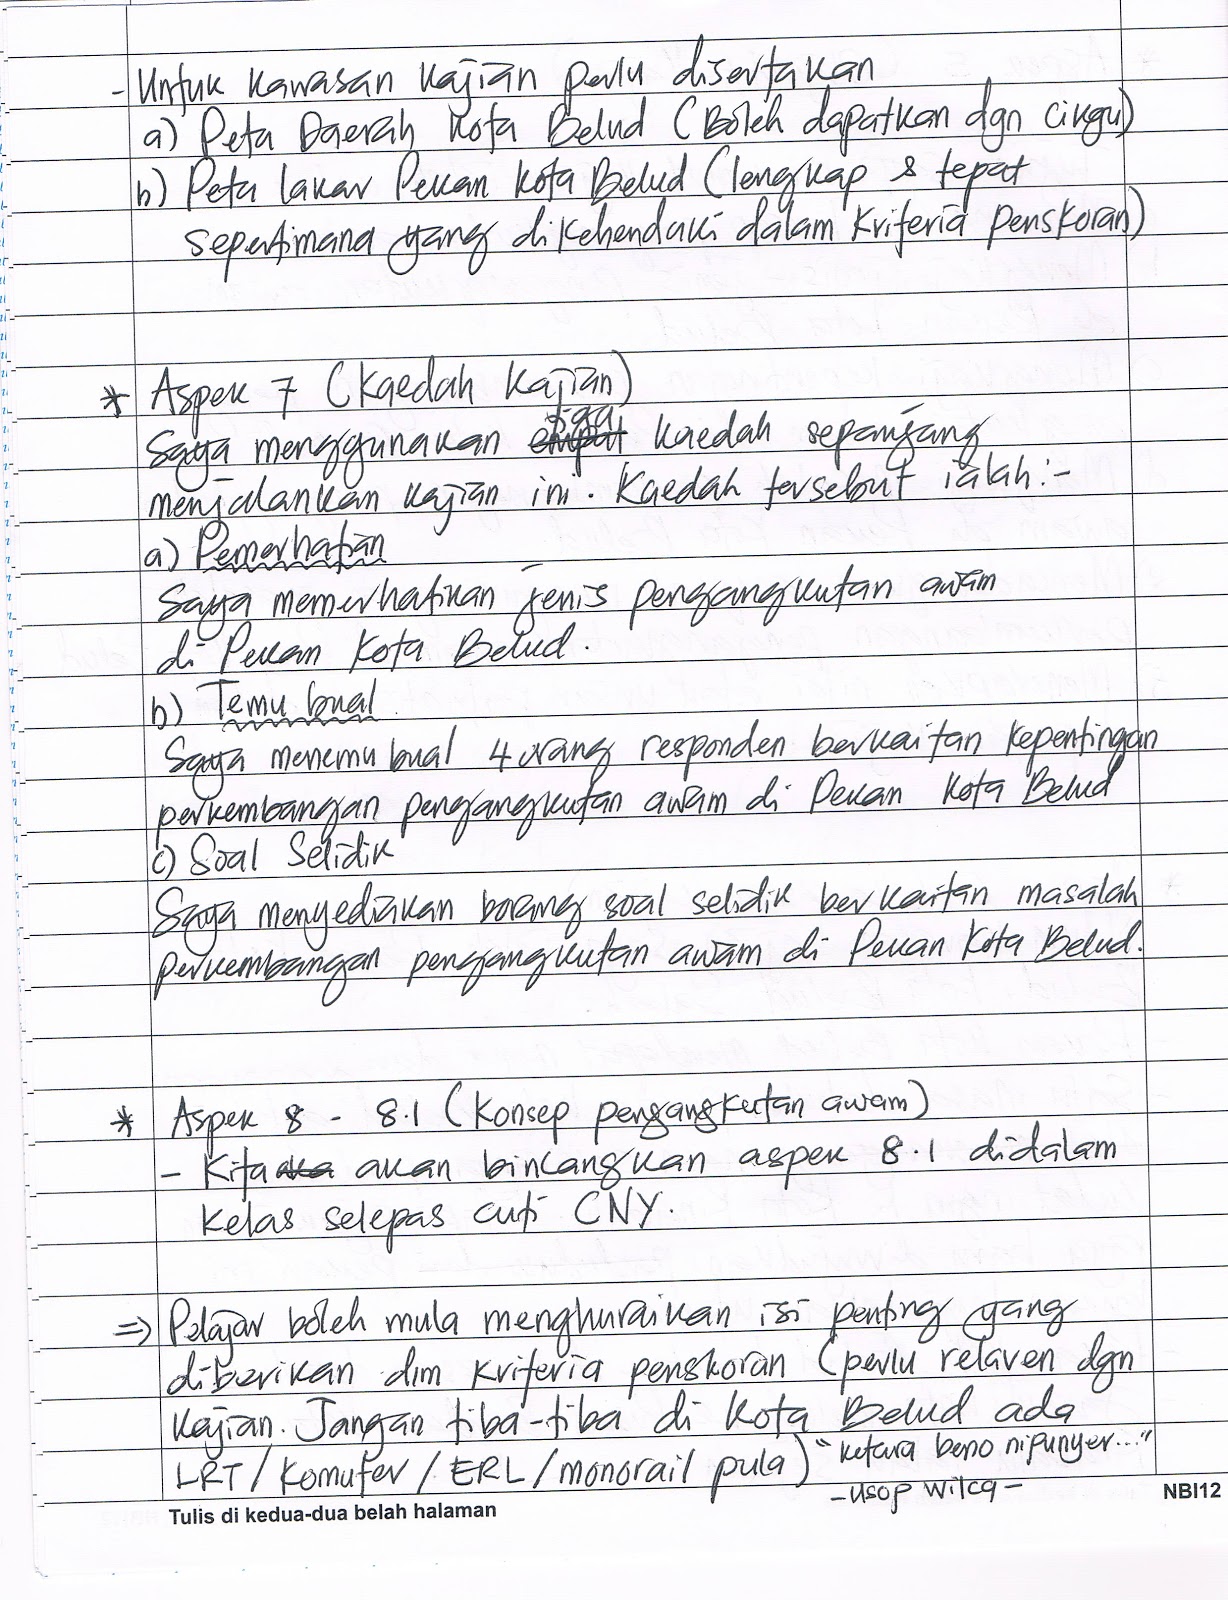 - Untuk kawasan kajian perlu disertakan
a) Peta Daerah Kota Belud (Boleh dapatkan dgn cikgu)
b) Peta lakar Pekan Kota Belud (lengkap & tepat
sepertimana yang dikehendaki dalam kriteria penskoran)
* Aspek 7 (Kaedah Kajian)
tiga
Saya menggunakan empat kaedah sepanjang
menjalankan kajian ini. Kaedah tersebut ialah:-
a) Pemerhatian
Saya memerhatikan jenis pengangkutan awam
di Pekan Kota Belud.
b) Temu bual
Saya menemu bual 4 orang responden berkaitan kepentingan
perkembangan pengangkutan awam di Pekan Kota Belud
c) Soal Selidik
Saya menyediakan borang soal selidik berkaitan masalah
perkembangan pengangkutan awam di Pekan Kota Belud.
* Aspek 8 - 8.1 (Konsep pengangkutan awam)
- Kita aka akan bincangkan aspek 8.1 didalam
kelas selepas cuti CNY.
⇒ Pelajar boleh mula menghuraikan isi penting yang
diberikan dlm kriteria penskoran (perlu relaven dgn
kajian. Jangan tiba-tiba di Kota Belud ada
LRT/Komuter/ERL/monorail pula) "ketara beno nipunyer..."
- usop wilcq -
Tulis di kedua-dua belah halaman NBI12